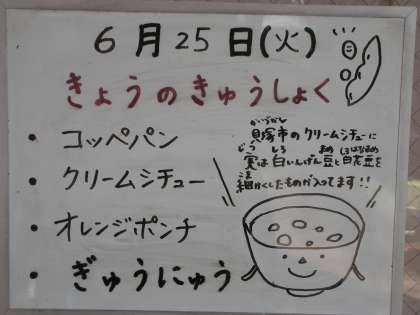 6月25日(火)
きょうのきゅうしょく
・コッペパン
・クリームシチュー
・オレンジポンチ
・ぎゅうにゅう
かいづかし
貝塚市のクリームシチューに
じつ しろ まめ しろはなまめ
実は白いんげん豆と白花豆を
こま
細かくしたものが入ってます!!